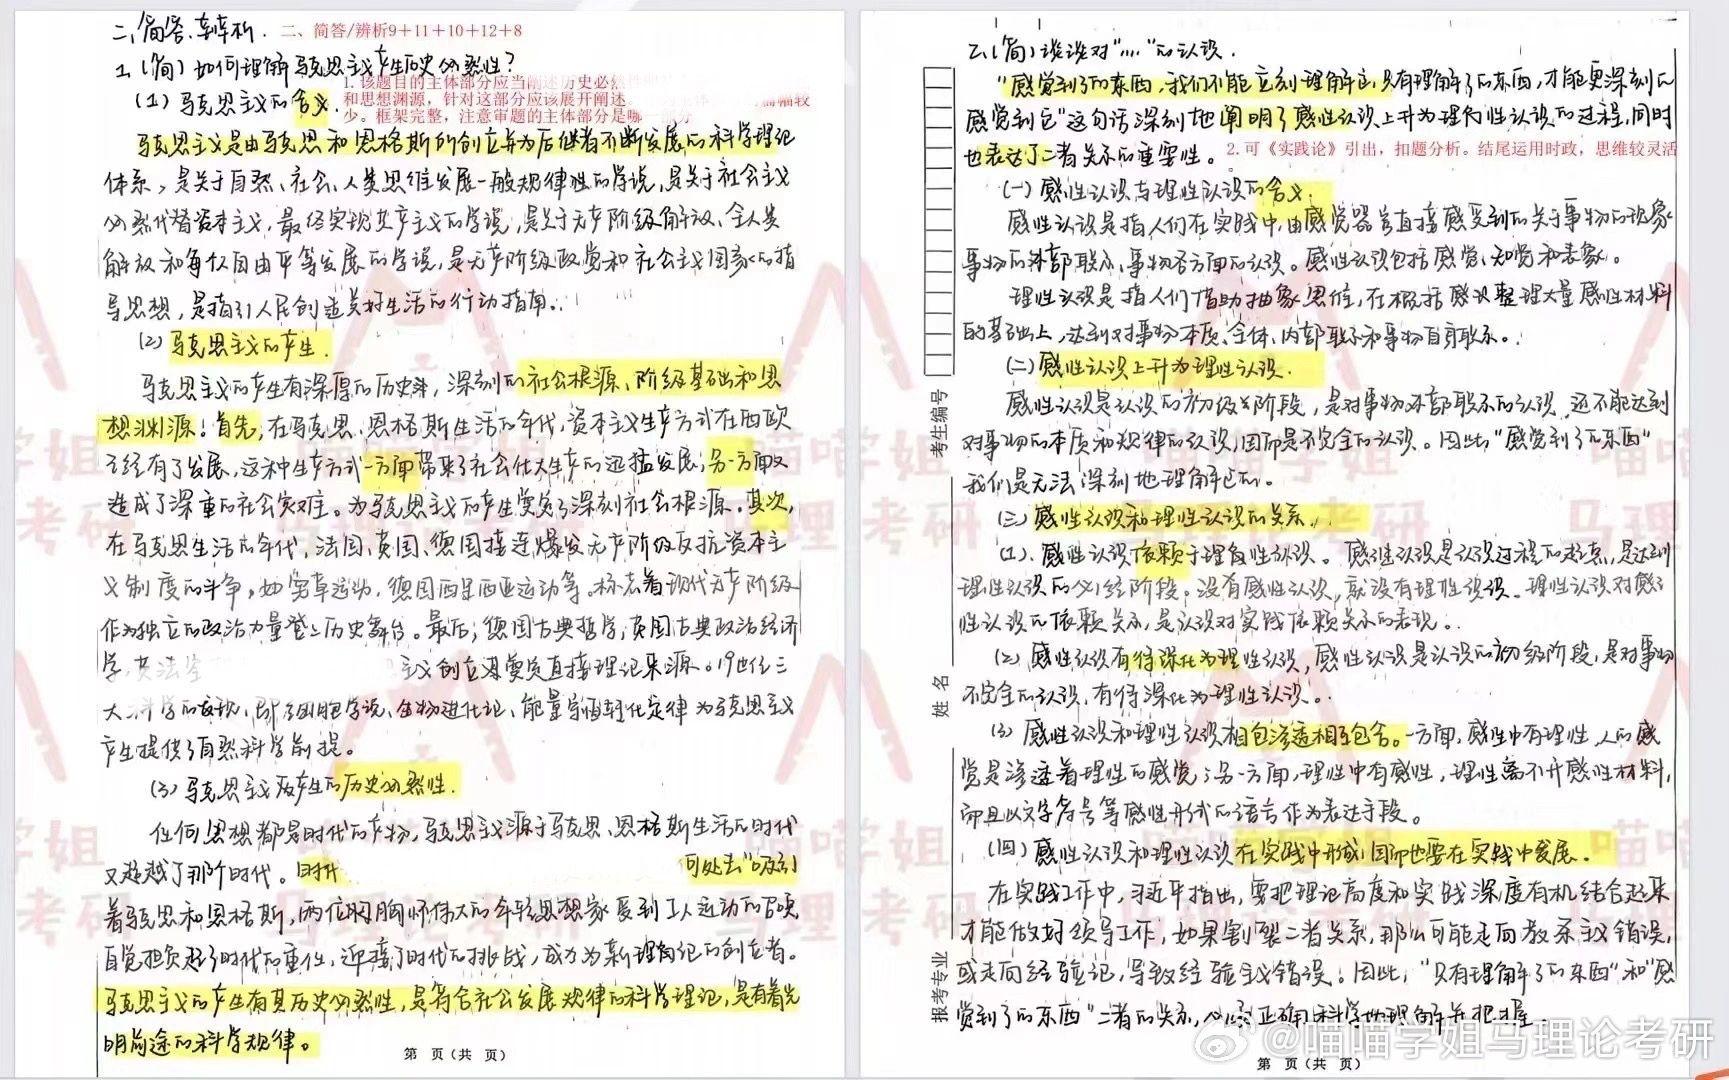 二、简答、辨析.
二、简答/辨析9+11+10+12+8
1、(简)如何理解马克思主义产生历史必然性?
1. 该题目的主体部分应当阐述历史必然性
(1)马克思主义的含义.
和思想渊源，针对这部分应该展开阐述。
少。框架完整，注意审题的主体部分是哪一部分
马克思主义是由马克思和恩格斯所创立并为后继者不断发展的科学理论
体系，是关于自然、社会、人类思维发展一般规律性的学说，是关于社会主义
必然代替资本主义，最终实现共产主义的学说，是关于无产阶级解放、全人类
解放和每个人自由平等发展的学说，是无产阶级政党和社会主义国家的指
导思想，是指引人民创造美好生活的行动指南。
(2)马克思主义的产生.
马克思主义的产生有深厚的历史，深刻的社会根源、阶级基础和思
想渊源！首先，在马克思、恩格斯生活的年代，资本主义生产方式在西欧
已经有了发展，这种生产方式一方面带来了社会化大生产的迅猛发展；另一方面又
造成了深重的社会灾难。为马克思主义的产生奠定了深刻社会根源。其次，
在马克思生活的年代，法国、英国、德国接连爆发无产阶级反抗资本主
义制度的斗争，如宪章运动，德国西里西亚运动等。标志着现代无产阶级
作为独立的政治力量登上历史舞台。最后，德国古典哲学，英国古典政治经济
学，英法空 主义创立奠定直接理论来源。19世纪三
大科学的发现，即细胞学说、生物进化论、能量守恒转化定律为马克思主义
产生提供了自然科学前提。
(3)马克思主义产生的历史必然性.
任何思想都是时代的产物，马克思主义源于马克思、恩格斯生活的时代
又超越了那个时代。时代 何处去"吸引
着马克思和恩格斯，两位胸怀伟大的年轻思想家受到工人运动的召唤，
自觉担负起了时代的重任，迎接了时代的挑战，成为新理论的创立者。
马克思主义的产生有其历史必然性，是符合社会发展规律的科学理论，是有着光
明前途的科学规律。
第 页（共 页）
2、(简)谈谈对"……"的认识.
"感觉到了的东西，我们不能立刻理解它，只有理解了的东西，才能更深刻的
感觉到它"这句话深刻地阐明了感性认识上升为理性认识的过程，同时
也表达了二者关系的重要性。
2.可《实践论》引出，扣题分析。结尾运用时政，思维较灵活
(一)感性认识与理性认识的含义.
感性认识是指人们在实践中，由感觉器官直接感受到的关于事物的现象
事物的外部联系、事物各方面的认识。感性认识包括感觉、知觉和表象。
理性认识是指人们借助抽象思维，在概括整理大量感性材料
的基础上，达到对事物本质、全体、内部联系和事物自身联系。
(二)感性认识上升为理性认识.
感性认识是认识的初级阶段，是对事物外部联系的认识，还不能达到
对事物的本质和规律的认识，因而是不完全的认识。因此"感觉到了的东西"
我们是无法深刻地理解它的。
(三)感性认识和理性认识的关系.
(1)、感性认识依赖于理性认识。感性认识是认识过程的起点，是达到
理性认识的必经阶段。没有感性认识，就没有理性认识。理性认识对感
性认识的依赖关系，是认识对实践依赖关系的表现。
(2)感性认识有待深化为理性认识，感性认识是认识的初级阶段，是对事物
不完全的认识，有待深化为理性认识。
(3)感性认识和理性认识相互渗透相互包含。一方面，感性中有理性，人的感
觉是渗透着理性的感觉；另一方面，理性中有感性，理性离不开感性材料，
而且以文字符号等感性形式的语言作为表达手段。
(四)感性认识和理性认识在实践中形成，因而也要在实践中发展。
在实践工作中，习近平指出，要把理论高度和实践深度有机结合起来
才能做好领导工作，如果割裂二者关系，那么可能走向教条主义错误，
或走向经验论，导致经验主义错误。因此，"只有理解了的东西"和"感
觉到了的东西"二者的关系，必须正确科学地理解并把握。
第 页（共 页）
考生编号
姓 名
报考专业
喵喵学姐
马理论考研
@喵喵学姐马理论考研